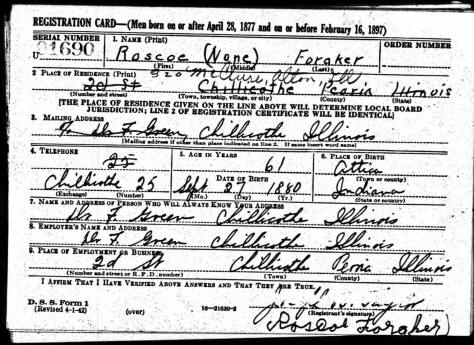 REGISTRATION CARD—(Men born on or after April 28, 1877 and on or before February 16, 1897)
SERIAL NUMBER 1. NAME (Print) ORDER NUMBER
U 01690 Roscoe (None) Foraker
(First) (Middle) (Last)
2. PLACE OF RESIDENCE (Print) 520 McClure, Alton, Ill
2d St Chillicothe Peoria Illinois
(Number and street) (Town, township, village, or city) (County) (State)
[THE PLACE OF RESIDENCE GIVEN ON THE LINE ABOVE WILL DETERMINE LOCAL BOARD
JURISDICTION; LINE 2 OF REGISTRATION CERTIFICATE WILL BE IDENTICAL]
3. MAILING ADDRESS
F Green, Chillicothe Illinois
[Mailing address if other than place indicated on line 2. If same insert word same]
4. TELEPHONE 5. AGE IN YEARS 6. PLACE OF BIRTH
25 61 Attica
DATE OF BIRTH (Town or county)
Chillicothe 25 Sept 27 1880 Indiana
(Exchange) (Number) (Mo.) (Day) (Yr.) (State or country)
7. NAME AND ADDRESS OF PERSON WHO WILL ALWAYS KNOW YOUR ADDRESS
F Green Chillicothe Illinois
8. EMPLOYER'S NAME AND ADDRESS
F Green Chillicothe Illinois
9. PLACE OF EMPLOYMENT OR BUSINESS
2d St Chillicothe Peoria Illinois
(Number and street or R. F. D. number) (Town) (County) (State)
I AFFIRM THAT I HAVE VERIFIED ABOVE ANSWERS AND THAT THEY ARE TRUE.
D. S. S. Form 1
(Revised 4-1-42) (over) 16—21630-2 (Registrant's signature)
Roscoe Foraker